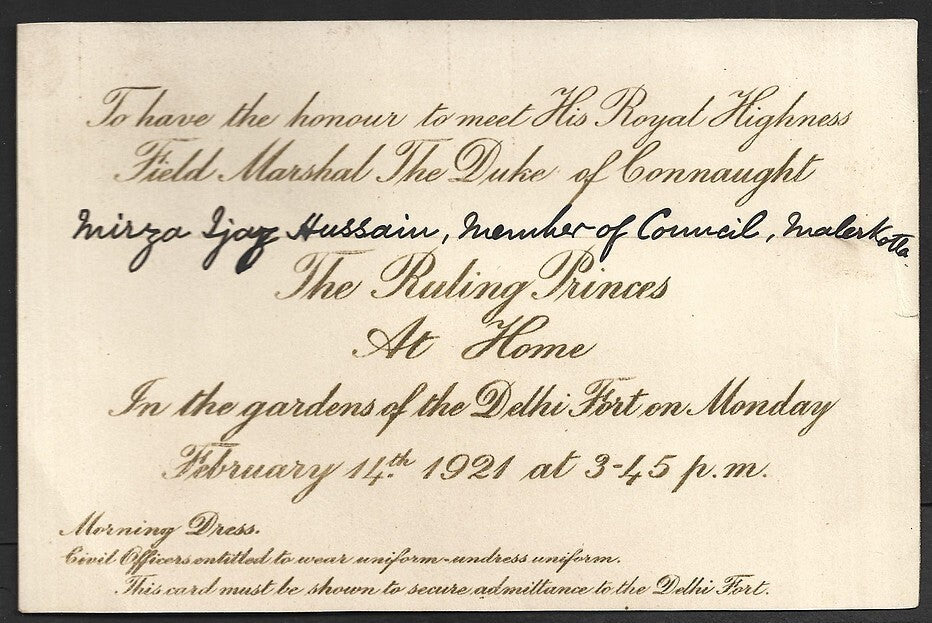 To have the honour to meet His Royal Highness
Field Marshal The Duke of Connaught
Mirza Ijaz Hussain, Member of Council, Malerkotla.
The Ruling Princes
At Home
In the gardens of the Delhi Fort on Monday
February 14th. 1921 at 3-45 p.m.
Morning Dress.
Civil Officers entitled to wear uniform-undress uniform.
This card must be shown to secure admittance to the Delhi Fort.